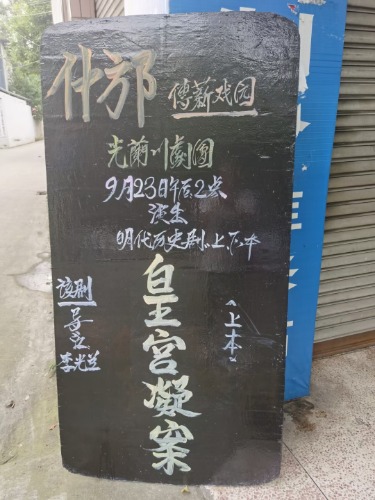 什邡 傳薪戏园
光蘭川劇團
9月23日午后2点
演出
明代历史剧《上、下本
皇宫凝案
《上本》
该剧
导演
李光兰